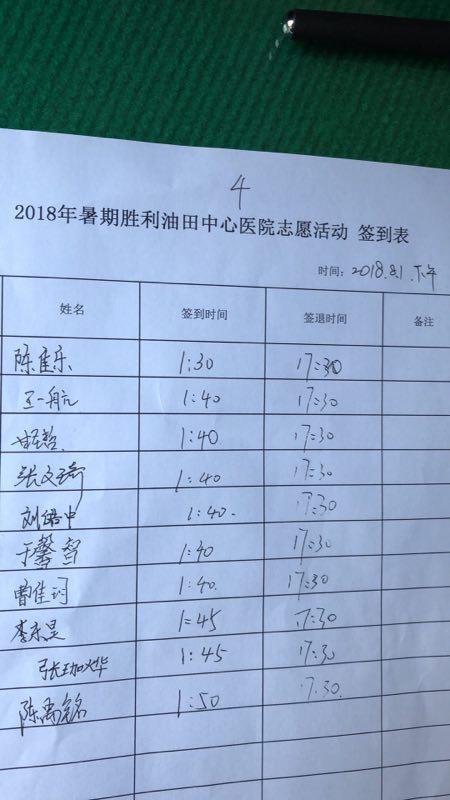 4
2018年暑期胜利油田中心医院志愿活动 签到表
时间：2018.8.1.下午
姓名 签到时间 签退时间 备注
陈佳乐 1:30 17:30
王一航 1:40 17:30
1:40. 17:30
张文琦 1:40 17:30
刘培中 1:40. 17:30
于馨智 1:40 17:30
曹佳诃 1:40. 17:30
李东昱 1:45 17:30
张珈烨 1:45 17:30
陈禹铭 1:50 17.30.